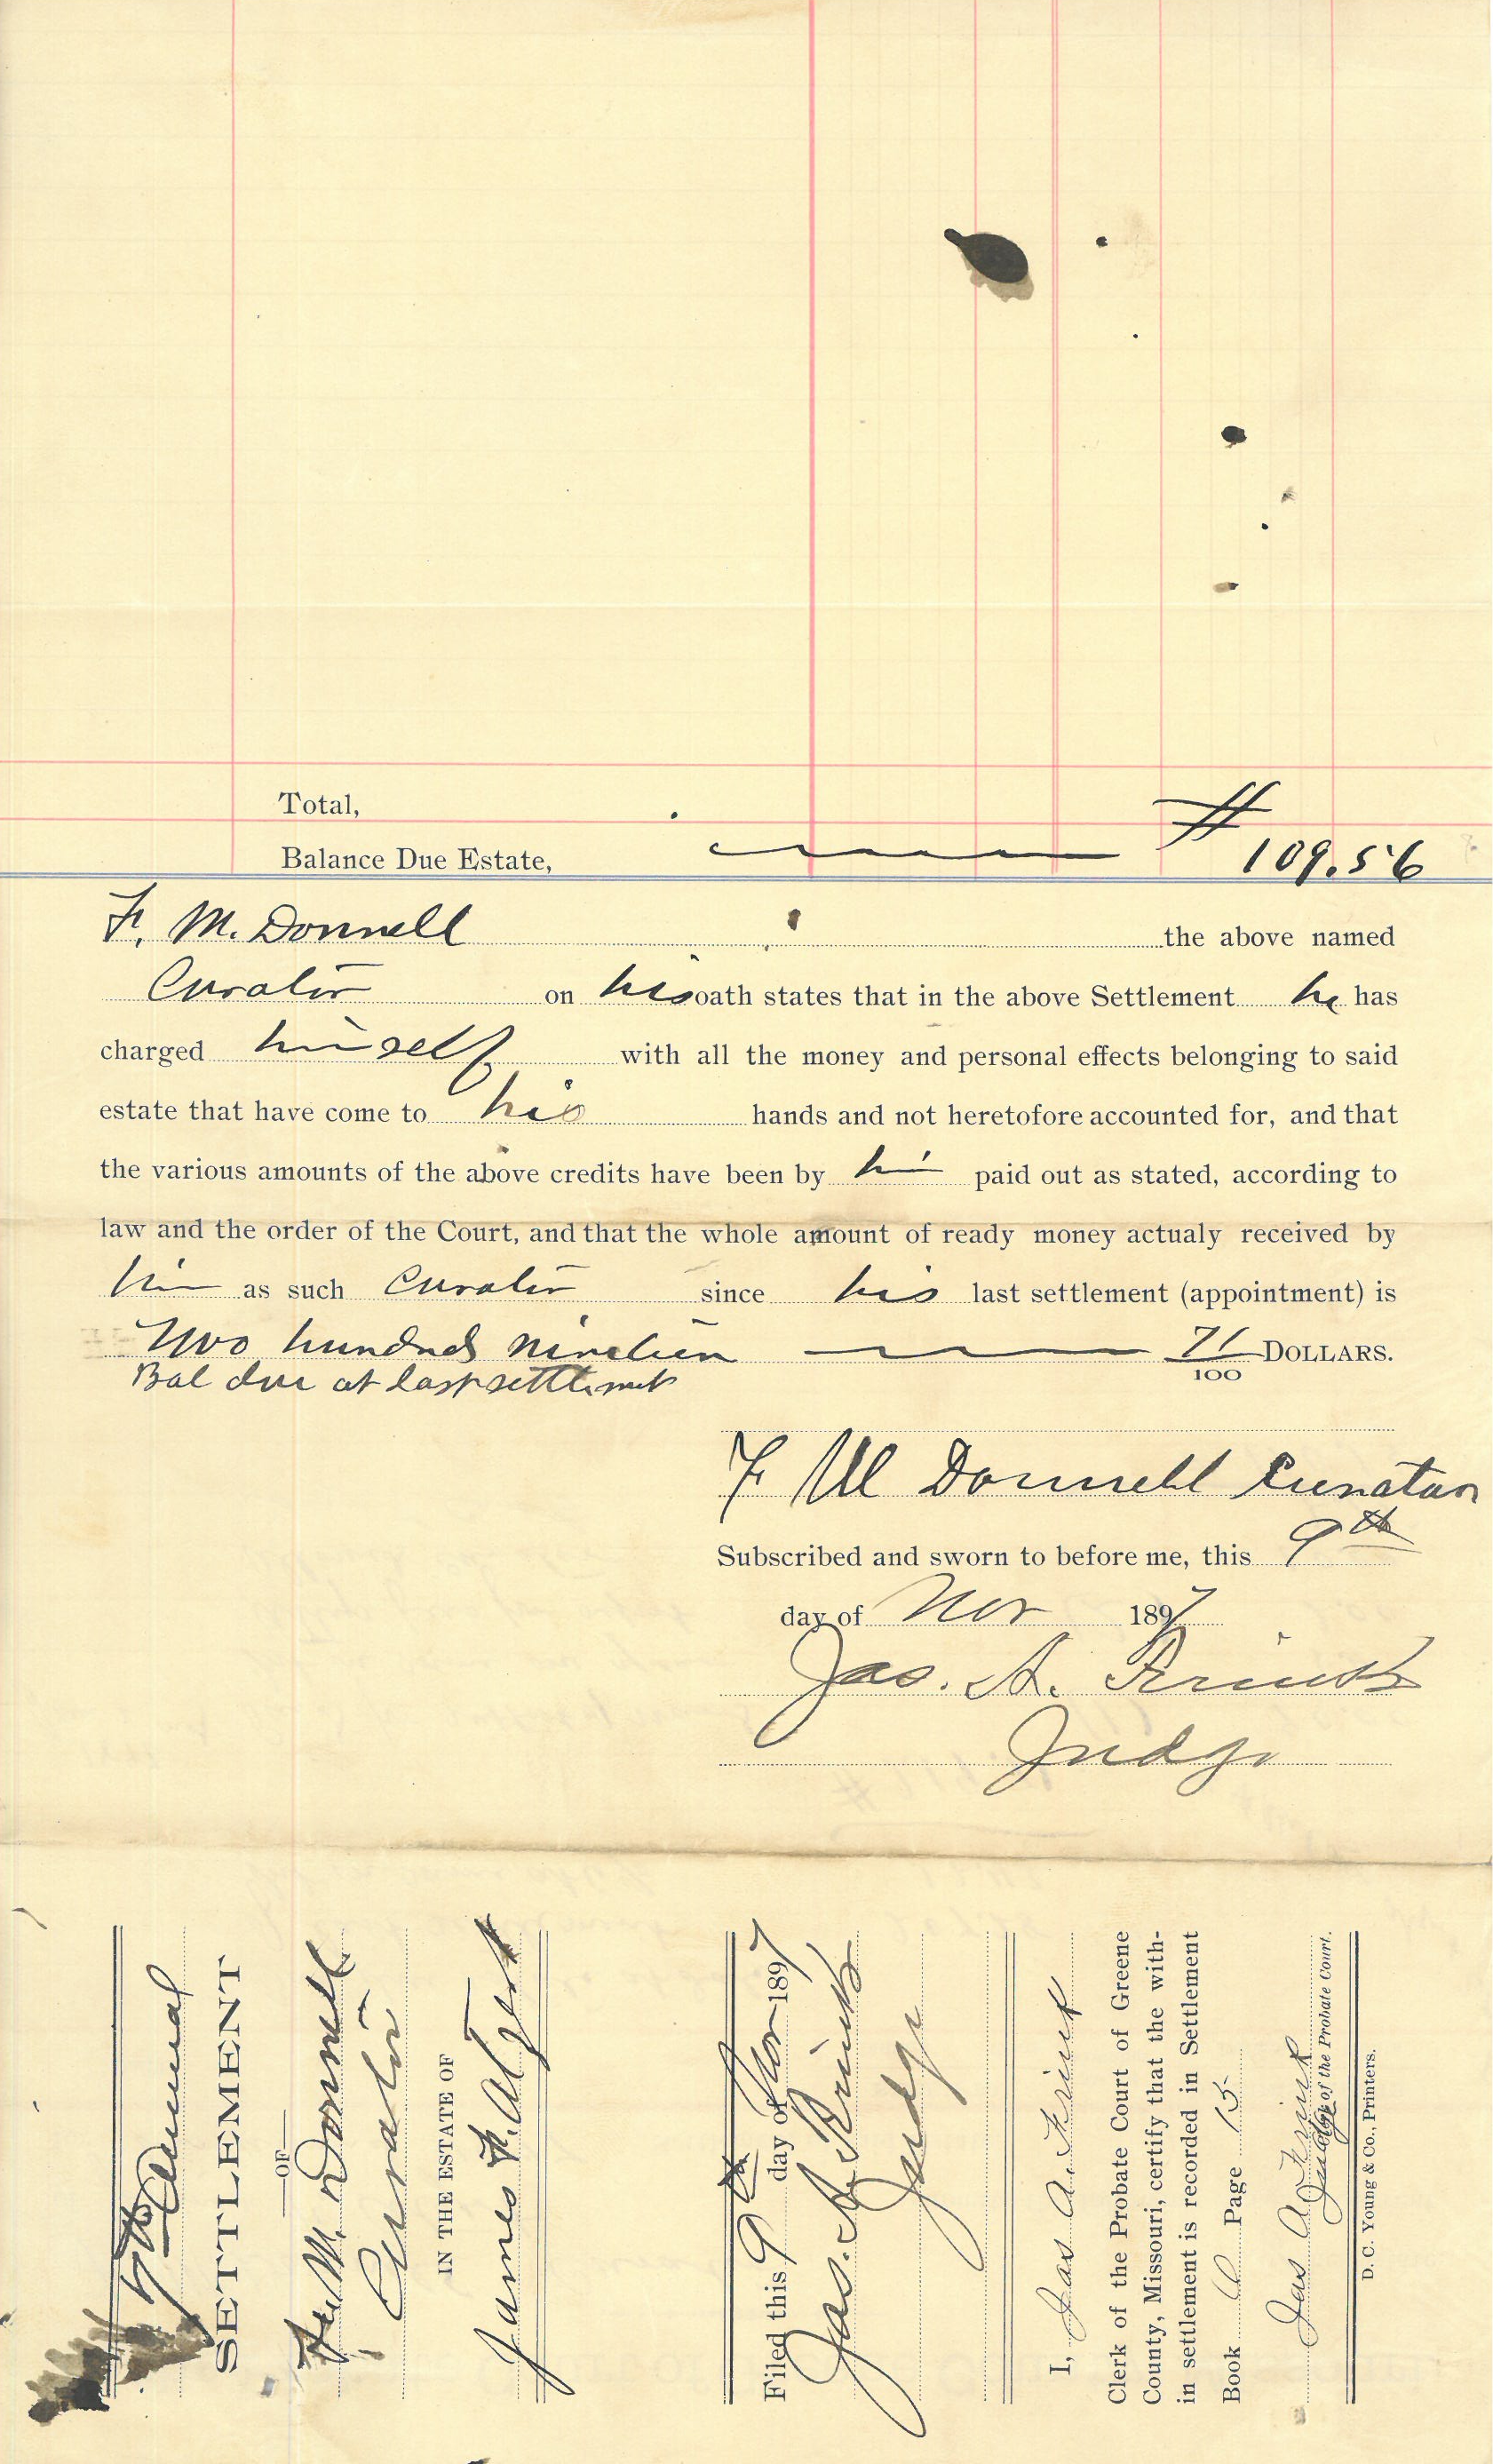 Total,
# 109.56
Balance Due Estate,
F. M. Donnell the above named
Curator on his oath states that in the above Settlement he has
charged himself with all the money and personal effects belonging to said
estate that have come to his hands and not heretofore accounted for, and that
the various amounts of the above credits have been by him paid out as stated, according to
law and the order of the Court, and that the whole amount of ready money actualy received by
him as such Curator since his last settlement (appointment) is
Two hundred nineteen 71/100 DOLLARS.
Bal due at last settlement
F M Donnell Curator
Subscribed and sworn to before me, this 9th
day of Nov 1897
Jas. A. Frink
Judge
Annual
SETTLEMENT
OF
F. M. Donnell
Curator
IN THE ESTATE OF
James F.
Filed this 9th day of Nov 1897
Jas. A. Frink
Judge
I, Jas A. Frink
Clerk of the Probate Court of Greene
County, Missouri, certify that the with-
in settlement is recorded in Settlement
Book Page 15
Jas A Frink
Judge of the Probate Court.
D. C. Young & Co., Printers.